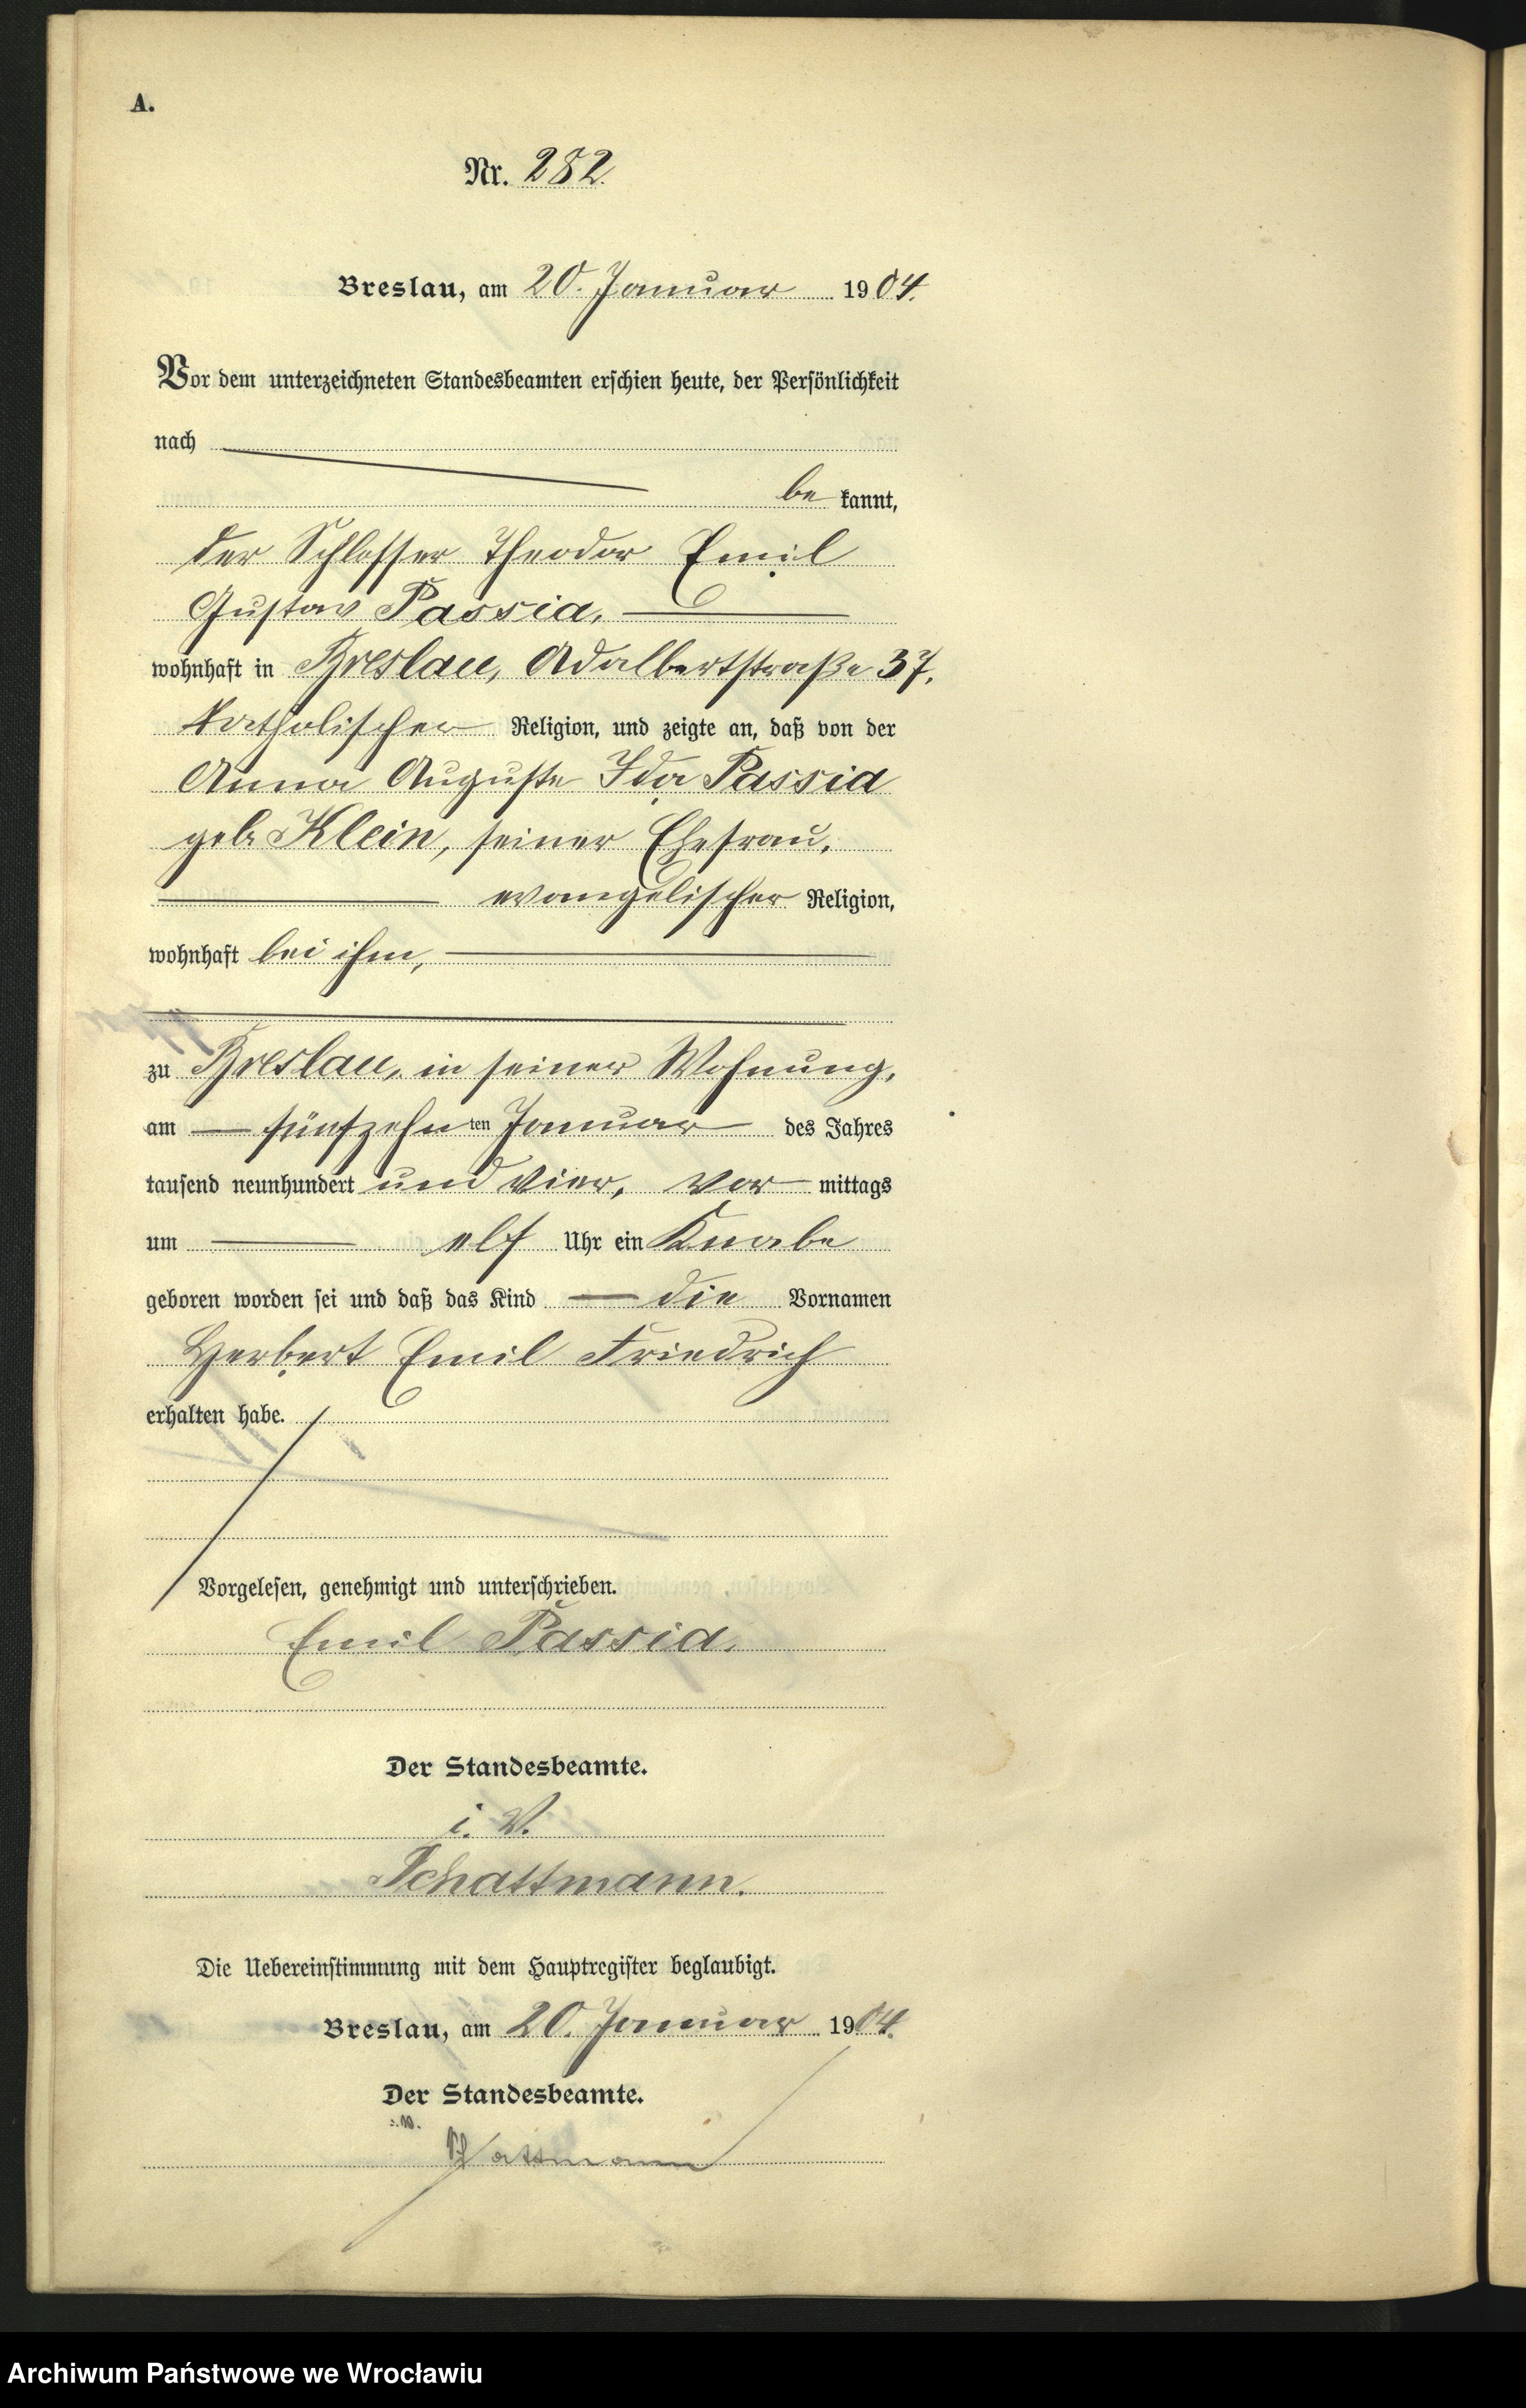 A.
Nr. 282.
Breslau, am 20. Januar 1904.
Vor dem unterzeichneten Standesbeamten erschien heute, der Persönlichkeit
nach
be kannt,
der Schlosser Theodor Emil
Gustav Passia,
wohnhaft in Breslau, Adalbertstraße 37,
katholischer Religion, und zeigte an, daß von der
Anna Auguste Ida Passia
geb. Klein, seiner Ehefrau,
evangelischer Religion,
wohnhaft bei ihm,
zu Breslau, in seiner Wohnung,
am fünfzehn ten Januar des Jahres
tausend neunhundert und vier, vor mittags
um elf Uhr ein Knabe
geboren worden sei und daß das Kind die Vornamen
Herbert Emil Friedrich
erhalten habe.
Vorgelesen, genehmigt und unterschrieben.
Emil Passia.
Der Standesbeamte.
i. V.
Schattmann.
Die Uebereinstimmung mit dem Hauptregister beglaubigt.
Breslau, am 20. Januar 1904.
Der Standesbeamte.
i. V.
Schattmann
Archiwum Państwowe we Wrocławiu